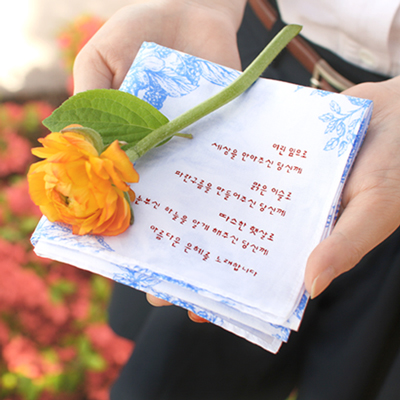 여린 잎으로
세상을 안아주신 당신께
맑은 이슬로
파란구름을 만들어주신 당신께
따스한 햇살로
눈부신 하늘을 알게 해주신 당신께
아름다운 은혜를 노래합니다